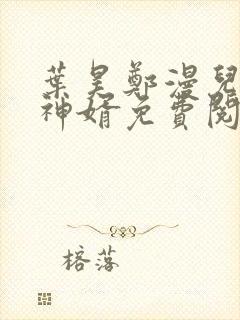 葉昊鄭漫兒
神婿免費閱
榕落